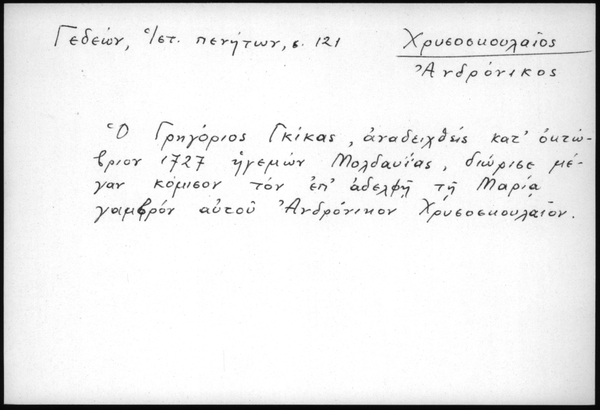 Γεδεών, Ἱστ. πενήτων, σ. 121
Χρυσοσκουλαῖος
Ἀνδρόνικος
Ὁ Γρηγόριος Γκίκας, ἀναδειχθείς κατ' ὀκτώ-
βριον 1727 ἡγεμών Μολδαυΐας, διώρισε μέ-
γαν κόμισον τόν ἐπ' ἀδελφῇ τῇ Μαρίᾳ
γαμβρόν αὐτοῦ Ἀνδρόνικον Χρυσοσκουλαῖον.